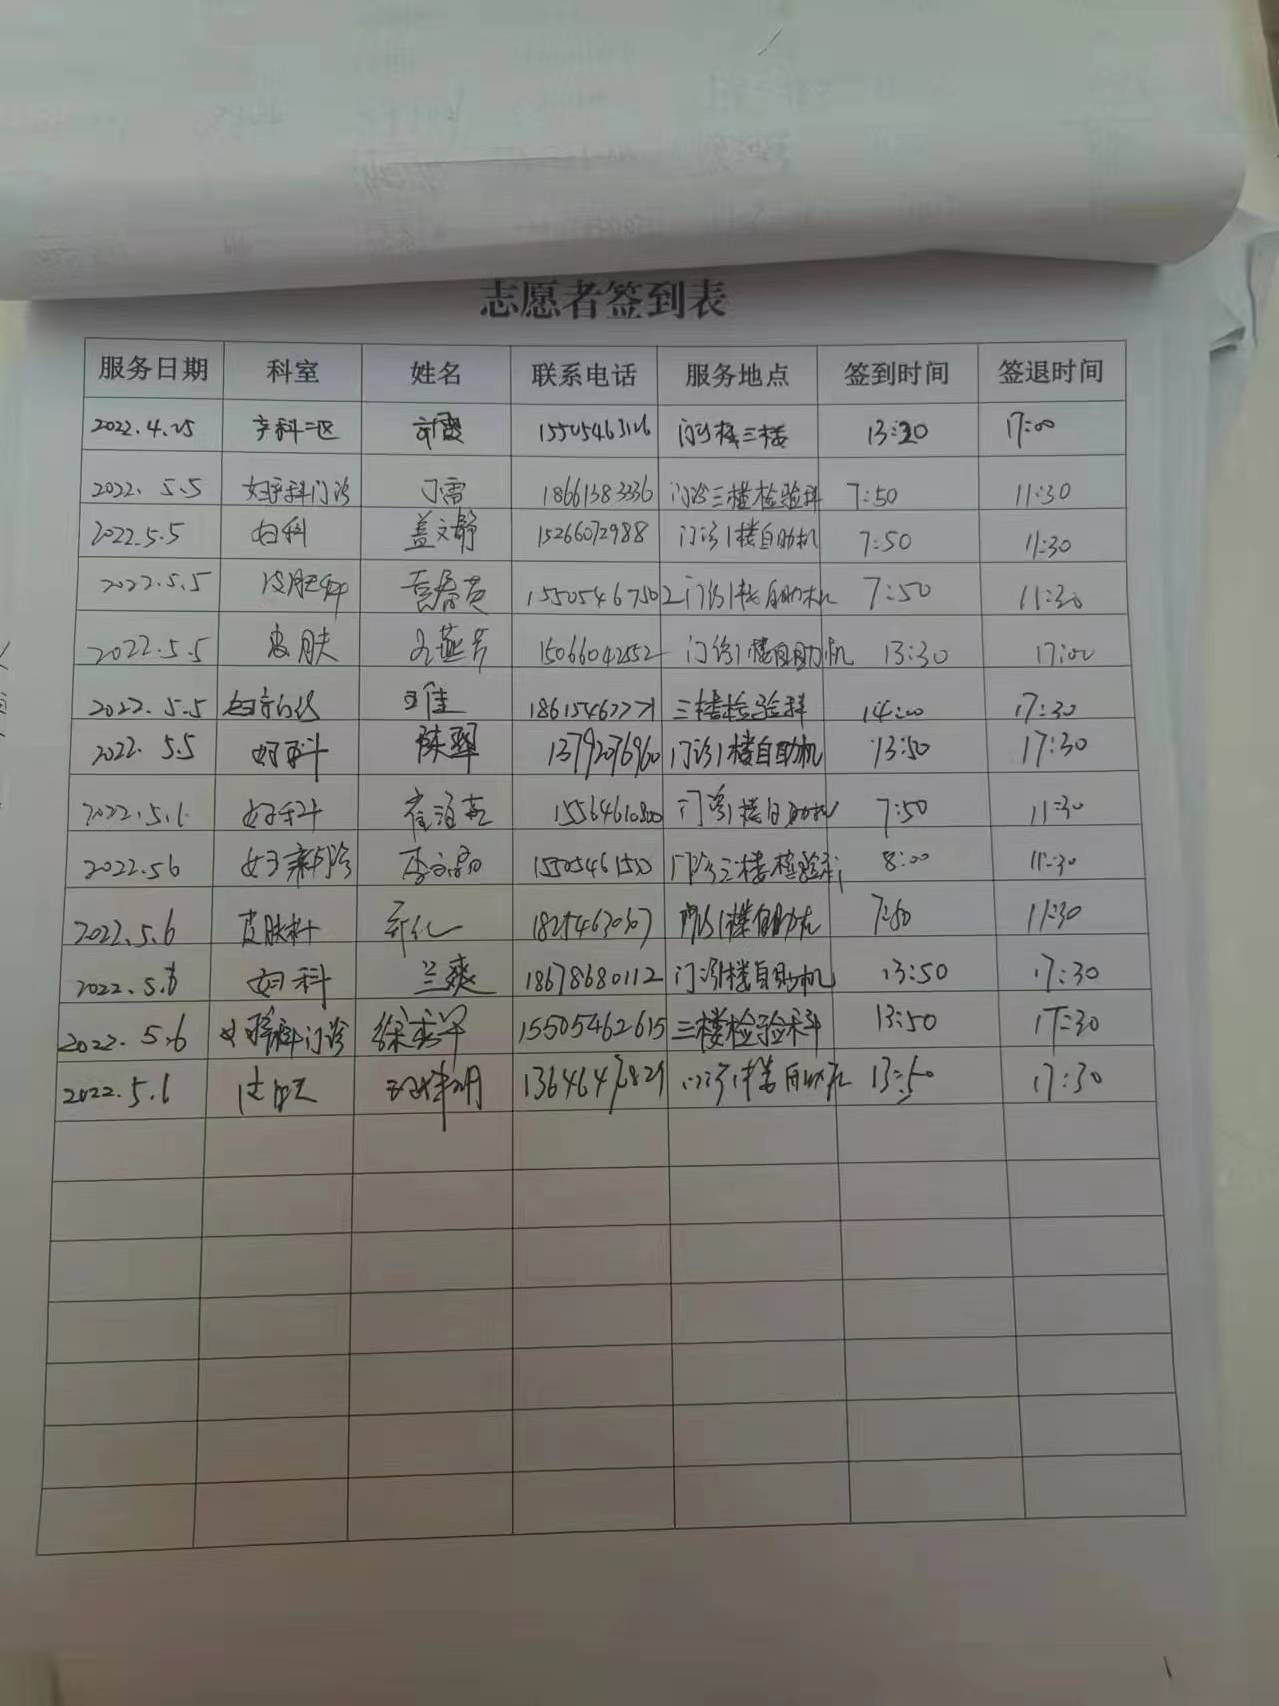 志愿者签到表
服务日期 科室 姓名 联系电话 服务地点 签到时间 签退时间
2022.4.25 产科二区 15505463126 门诊楼三楼 13:20 17:00
2022.5.5 妇产科门诊 丁雷 18661383336 门诊三楼检验科 7:50 11:30
2022.5.5 妇科 盖文静 15266072988 门诊1楼自助机 7:50 11:30
2022.5.5 皮肤科 15505467502 门诊1楼自助机 7:50 11:30
2022.5.5 皮肤 15066042552 门诊1楼自助机 13:30 17:00
2022.5.5 妇产门诊 18615462271 三楼检验科 14:00 17:30
2022.5.5 妇科 陈翠 13792076960 门诊1楼自助机 13:50 17:30
2022.5.6 妇科 门诊1楼自助机 7:50 11:30
2022.5.6 门诊三楼检验科 8:00 11:30
2022.5.6 皮肤科 门诊1楼自助机 7:50 11:30
2022.5.6 妇科 兰爽 18678680112 门诊1楼自助机 13:50 17:30
2022.5.6 妇产科门诊 15505462615 三楼检验科 13:50 17:30
2022.5.6 13:50 17:30